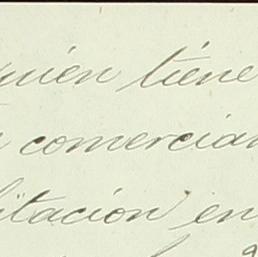 quien tiene
comercian
litación en